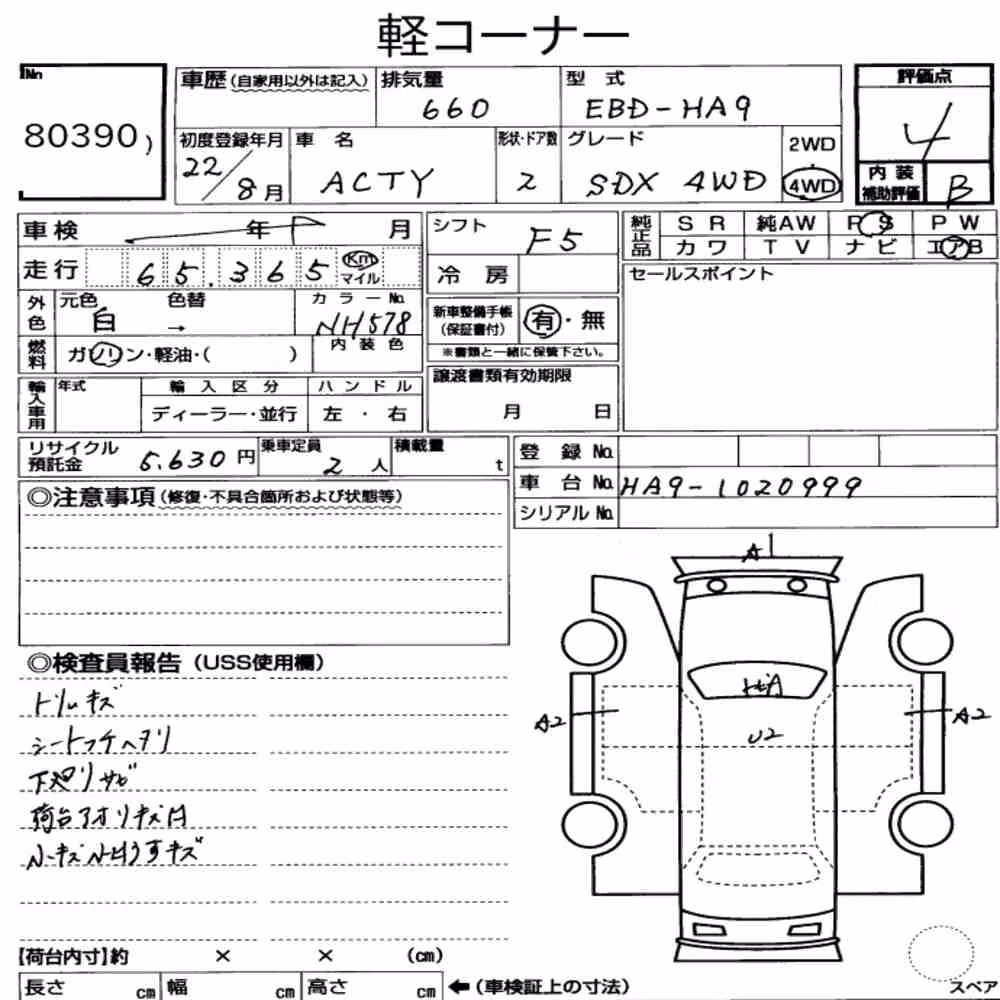 軽コーナー
No.
80390
車歴 (自家用以外は記入)
排気量
660
型式
EBD-HA9
評価点
4
初度登録年月
22/8月
車名
ACTY
形状・ドア数
2
グレード
SDX 4WD
2WD
4WD
内装
補助評価
B
車検 年 月
シフト
F5
純正品
SR 純AW PS PW
カワ TV ナビ エアB
走行 65.365 Km マイル
冷房
セールスポイント
外色
元色 色替
白 →
カラーNo.
NH578
新車整備手帳
(保証書付)
有・無
燃料
ガソリン・軽油・( )
内装色
※書類と一緒に保管下さい。
輸入車用
年式
輸入区分
ハンドル
ディーラー・並行
左・右
譲渡書類有効期限
月 日
リサイクル
預託金
5.630円
乗車定員
2人
積載量
t
登録No.
車台No. HA9-1020999
シリアルNo.
◎注意事項(修復・不具合箇所および状態等)
A1
◎検査員報告(USS使用欄)
トリムキズ
シートコゲヘタリ
下廻りサビ
荷台アオリキズ凹
A2
A2
U2
【荷台内寸】約 × × (cm)
長さ cm 幅 cm 高さ cm ←(車検証上の寸法)
スペア